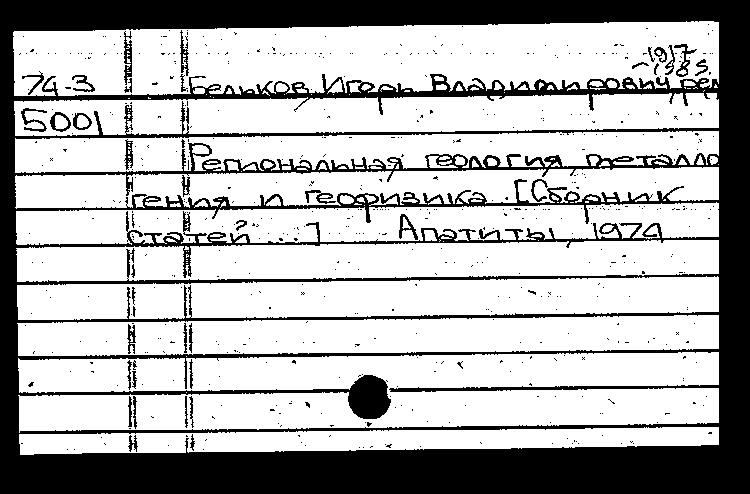 1917
- 1989
74-3 Бельков, Игорь Владимирович, ред
5001
Региональная геология, металло
гения и геофизика. [Сборник
статей ...] Апатиты, 1974